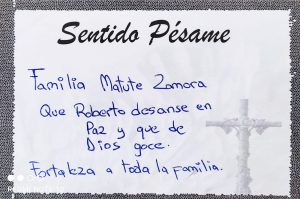 Sentido Pésame
Familia Matute Zamora
Que Roberto desanse en
Paz y que de
Dios goce.
Fortaleza a toda la familia.